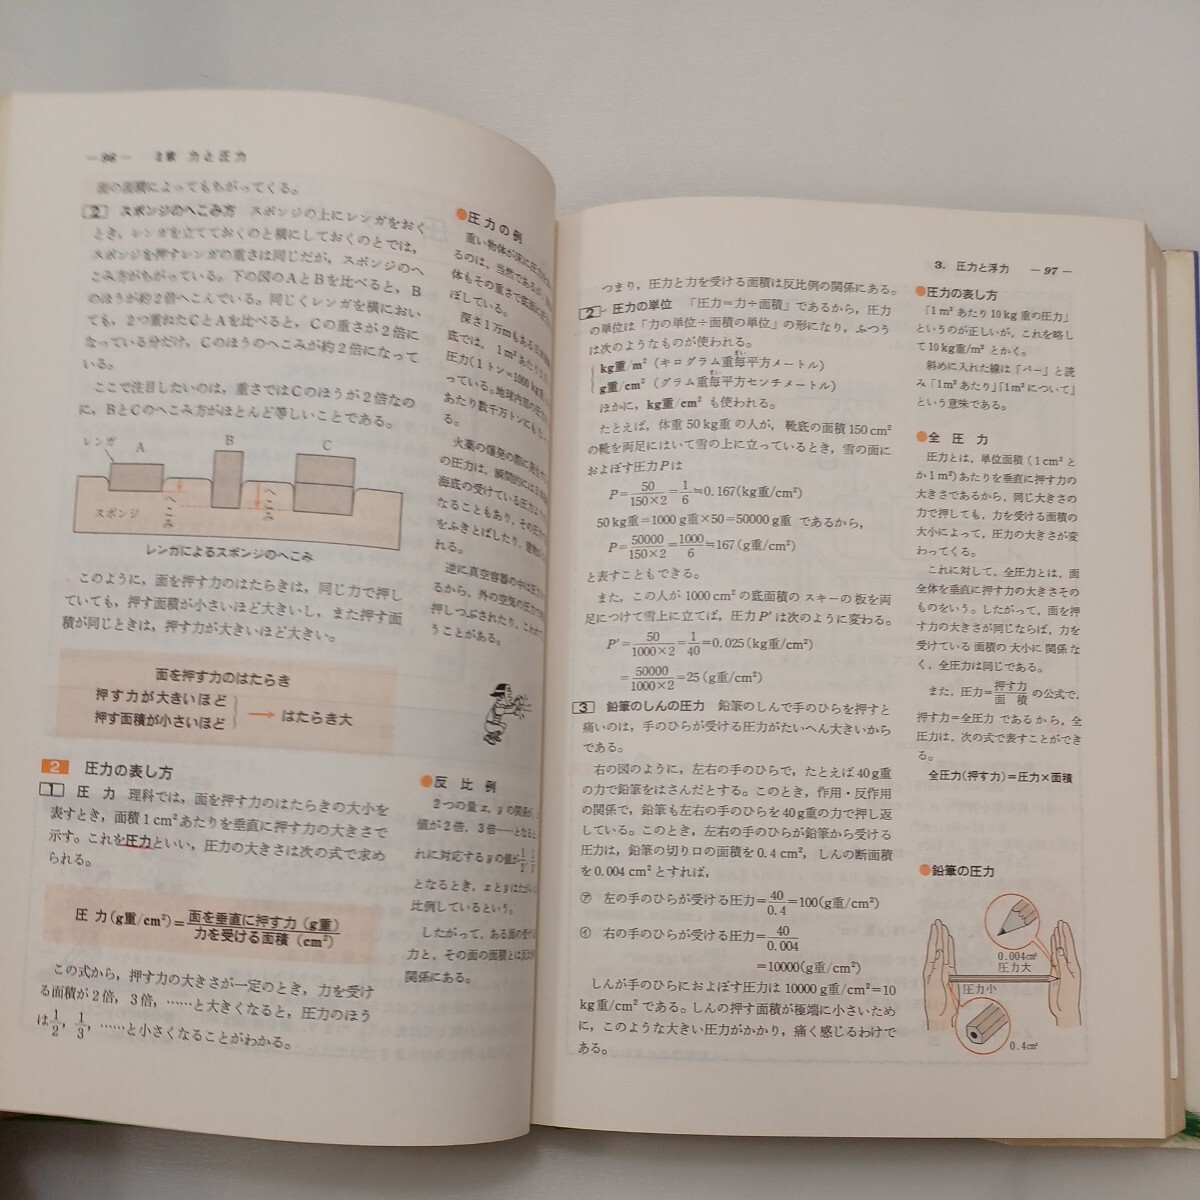 2章 力と圧力
面の面積によってもちがってくる。
2 スポンジのへこみ方 スポンジの上にレンガをおく
とき，レンガを立てておくのと横にしておくのとでは，
スポンジを押すレンガの重さは同じだが，スポンジのへ
こみ方がちがっている。下の図のAとBを比べると，B
のほうが約2倍へこんでいる。同じくレンガを横におい
ても，2つ重ねたCとAを比べると，Cの重さが2倍に
なっている分だけ，Cのほうのへこみが約2倍になって
いる。
ここで注目したいのは，重さではCのほうが2倍なの
に，BとCのへこみ方がほとんど等しいことである。
レンガ A B C
スポンジ へこみ へこみ
レンガによるスポンジのへこみ
このように，面を押す力のはたらきは，同じ力で押し
ていても，押す面積が小さいほど大きいし，また押す面
積が同じときは，押す力が大きいほど大きい。
面を押す力のはたらき
押す力が大きいほど
押す面積が小さいほど → はたらき大
2 圧力の表し方
1 圧力 理科では，面を押す力のはたらきの大小を
表すとき，面積1cm²あたりを垂直に押す力の大きさで
示す。これを圧力といい，圧力の大きさは次の式で求め
られる。
圧力(g重/cm²)=面を垂直に押す力(g重)/力を受ける面積(cm²)
この式から，押す力の大きさが一定のとき，力を受け
る面積が2倍，3倍，……と大きくなると，圧力のほう
は1/2，1/3，……と小さくなることがわかる。
●圧力の例
重い物体が床に圧力
るのは，当然であるが，
体もその重さで底面に
ぼしている。
深さ1万mもある
底では，1m²あたり
圧力(1トン=1000kg
っている。地球内部の
あたり数千万トンにも
る。
火薬の爆発の際に
の圧力は，瞬間的には
海底の受けている圧力
なることもあり，その
をふきとばしたり，建物
れる。
逆に真空容器の中は
るから，外の空気の圧力
押しつぶされたり，
うことがある。
●反比例
2つの量x，yの関係が，
値が2倍，3倍……となると
れに対応するyの値が1/2，
となるとき，xとyはたがいに
比例しているという。
したがって，ある面の受け
力と，その面の面積とは反比
関係にある。
3. 圧力と浮力 —97—
つまり，圧力と力を受ける面積は反比例の関係にある。
2 圧力の単位 「圧力=力÷面積」であるから，圧力
の単位は「力の単位÷面積の単位」の形になり，ふつう
は次のようなものが使われる。
kg重/m²(キログラム重毎平方メートル)
g重/cm²(グラム重毎平方センチメートル)
ほかに，kg重/cm²も使われる。
たとえば，体重50kg重の人が，靴底の面積150cm²
の靴を両足にはいて雪の上に立っているとき，雪の面に
およぼす圧力Pは
P=50/150×2=1/6≒0.167(kg重/cm²)
50kg重=1000g重×50=50000g重 であるから，
P=50000/150×2=1000/6≒167(g重/cm²)
と表すこともできる。
また，この人が1000cm²の底面積のスキーの板を両
足につけて雪上に立てば，圧力P′は次のように変わる。
P′=50/1000×2=1/40=0.025(kg重/cm²)
=50000/1000×2=25(g重/cm²)
3 鉛筆のしんの圧力 鉛筆のしんで手のひらを押すと
痛いのは，手のひらが受ける圧力がたいへん大きいから
である。
右の図のように，左右の手のひらで，たとえば40g重
の力で鉛筆をはさんだとする。このとき，作用・反作用
の関係で，鉛筆も左右の手のひらを40g重の力で押し返
している。このとき，左右の手のひらが鉛筆から受ける
圧力は，鉛筆の切り口の面積を0.4cm²，しんの断面積
を0.004cm²とすれば，
㋐ 左の手のひらが受ける圧力=40/0.4=100(g重/cm²)
㋑ 右の手のひらが受ける圧力=40/0.004
=10000(g重/cm²)
しんが手のひらにおよぼす圧力は10000g重/cm²=10
kg重/cm²である。しんの押す面積が極端に小さいため
に，このような大きい圧力がかかり，痛く感じるわけで
ある。
●圧力の表し方
「1m²あたり10kg重の圧力」
というのが正しいが，これを略し
て10kg重/m²とかく。
斜めに入れた線は「パー」と読
み「1m²あたり」「1m²について」
という意味である。
●全圧力
圧力とは，単位面積(1cm²と
か1m²)あたりを垂直に押す力の
大きさであるから，同じ大きさの
力で押しても，力を受ける面積の
大小によって，圧力の大きさが変
わってくる。
これに対して，全圧力とは，面
全体を垂直に押す力の大きさその
ものをいう。したがって，面を押
す力の大きさが同じならば，力を
受けている面積の大小に関係な
く，全圧力は同じである。
また，圧力=押す力/面積の公式で，
押す力=全圧力 であるから，全
圧力は，次の式で表すことができ
る。
全圧力(押す力)=圧力×面積
●鉛筆の圧力
0.004cm²
圧力大
圧力小
0.4cm²